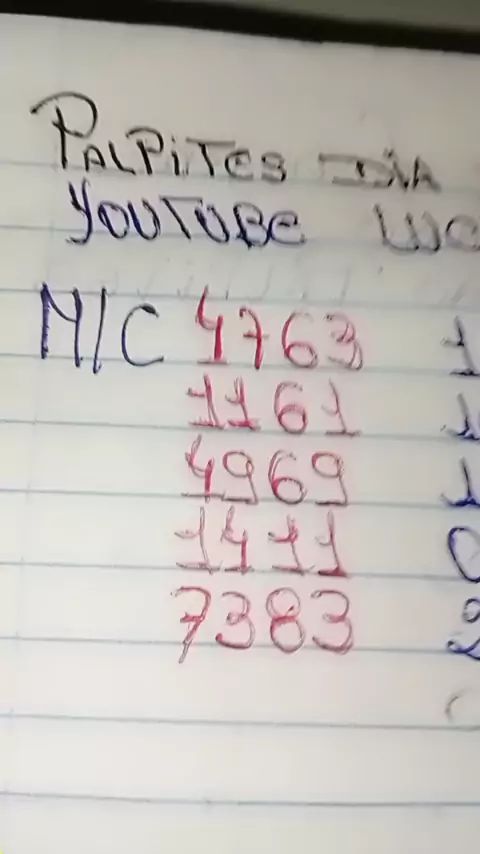 PALPITES DIA
YOUTUBE
M/C 4763 1
1161 1
4969 1
1411 0
7383 2